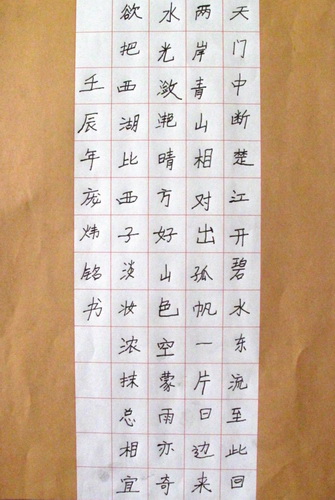 天门中断楚江开碧水东流至此回
两岸青山相对出孤帆一片日边来
水光潋滟晴方好山色空蒙雨亦奇
欲把西湖比西子淡妆浓抹总相宜
壬辰年庞炜铭书